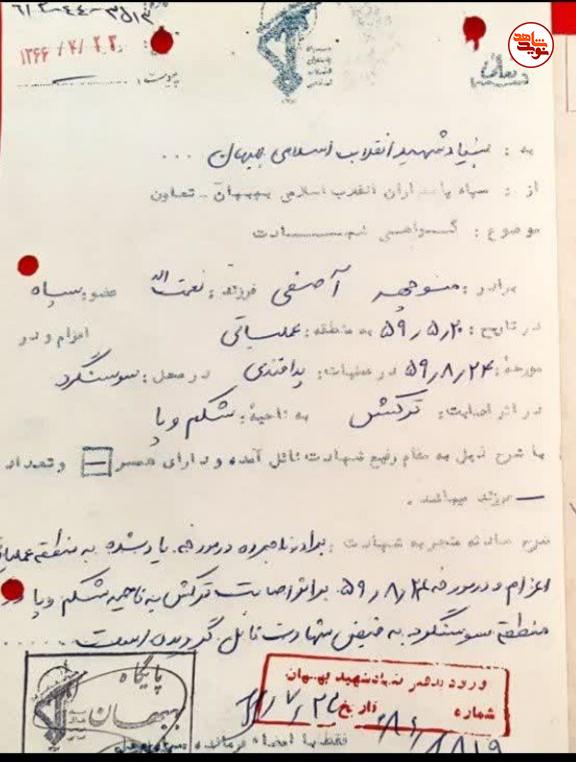 ۶۱۲-۴۴-۳۵۱۳
۱۳۶۶/۴/۲۳
پیوست:
نوید شاهد
به: بنیاد شهید انقلاب اسلامی بهبهان ...
از: سپاه پاسداران انقلاب اسلامی بهبهان - تعاون
موضوع: گواهی شهادت
برادر: منوچهر آصفی فرزند: نعمت اله عضو: سپاه
در تاریخ: ۵۹/۵/۲۰ به منطقه: عملیاتی اعزام و در
مورخه: ۵۹/۸/۲۴ در عملیات: پدافندی در محل: سوسنگرد
در اثر اصابت: ترکش به ناحیه: شکم و پا
با شرح ذیل به مقام رفیع شهادت نائل آمده و دارای همسر — و تعداد
— فرزند میباشد.
شرح حادثه منجر به شهادت: برادر نامبرده در مورخه یاد شده به منطقه عملیاتی
اعزام و در مورخه ۵۹/۸/۲۴ بر اثر اصابت ترکش به ناحیه شکم و پا در
منطقه سوسنگرد به فیض شهادت نائل گردیده است
ورود به دفتر بنیاد شهید بهبهان
شماره تاریخ
پایگاه
بهبهان
فقط با امضاء فرمانده